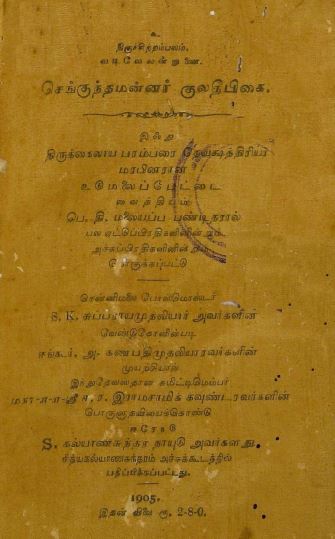 உ
திருச்சிற்றம்பலம்.
வடிவேலன்றுணை.
செங்குந்தமன்னர் குலதீபிகை.
இஃது
திருக்கைலாய பரம்பரை
மரபினரான
உடுமலைப்பேட்டை
வைத்தியம்
பெ. தி. மலையப்ப பண்டிதரால்
பல ஏட்டுப்பிரதிகளினின்றும்
அச்சுப்பிரதிகளினின்றும்
சேர்க்கப்பட்டு
சென்னிமலை போஸ்ட்மாஸ்டர்
S. K. சுப்பராயமுதலியார் அவர்களின்
வேண்டுகோளின்படி
அ. கணபதிமுதலியாரவர்களின்
முயற்சியால்
கமிட்டிமெம்பர்
ம-ள-ள-ஸ்ரீ ஈ, ர, இராமசாமிக் கவுண்டரவர்களின்
பொருளுதவியைக்கொண்டு
ஈரோடு
S. கல்யாணசுந்தர நாயுடு அவர்களது
சித்யகல்யாணசுந்தரம் அச்சுக்கூடத்தில்
பதிப்பிக்கப்பட்டது.
1905.
இதன் விலை ரூ. 2-8-0.